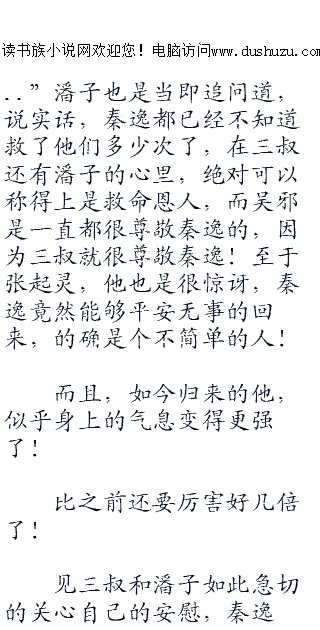 读书族小说网欢迎您！电脑访问www.dushuzu.com
..”潘子也是当即追问道，
说实话，秦逸都已经不知道
救了他们多少次了，在三叔
还有潘子的心里，绝对可以
称得上是救命恩人，而吴邪
是一直都很尊敬秦逸的，因
为三叔就很尊敬秦逸！至于
张起灵，他也是很惊讶，秦
逸竟然能够平安无事的回
来，的确是个不简单的人！
而且，如今归来的他，
似乎身上的气息变得更强
了！
比之前还要厉害好几倍
了！
见三叔和潘子如此急切
的关心自己的安慰，秦逸